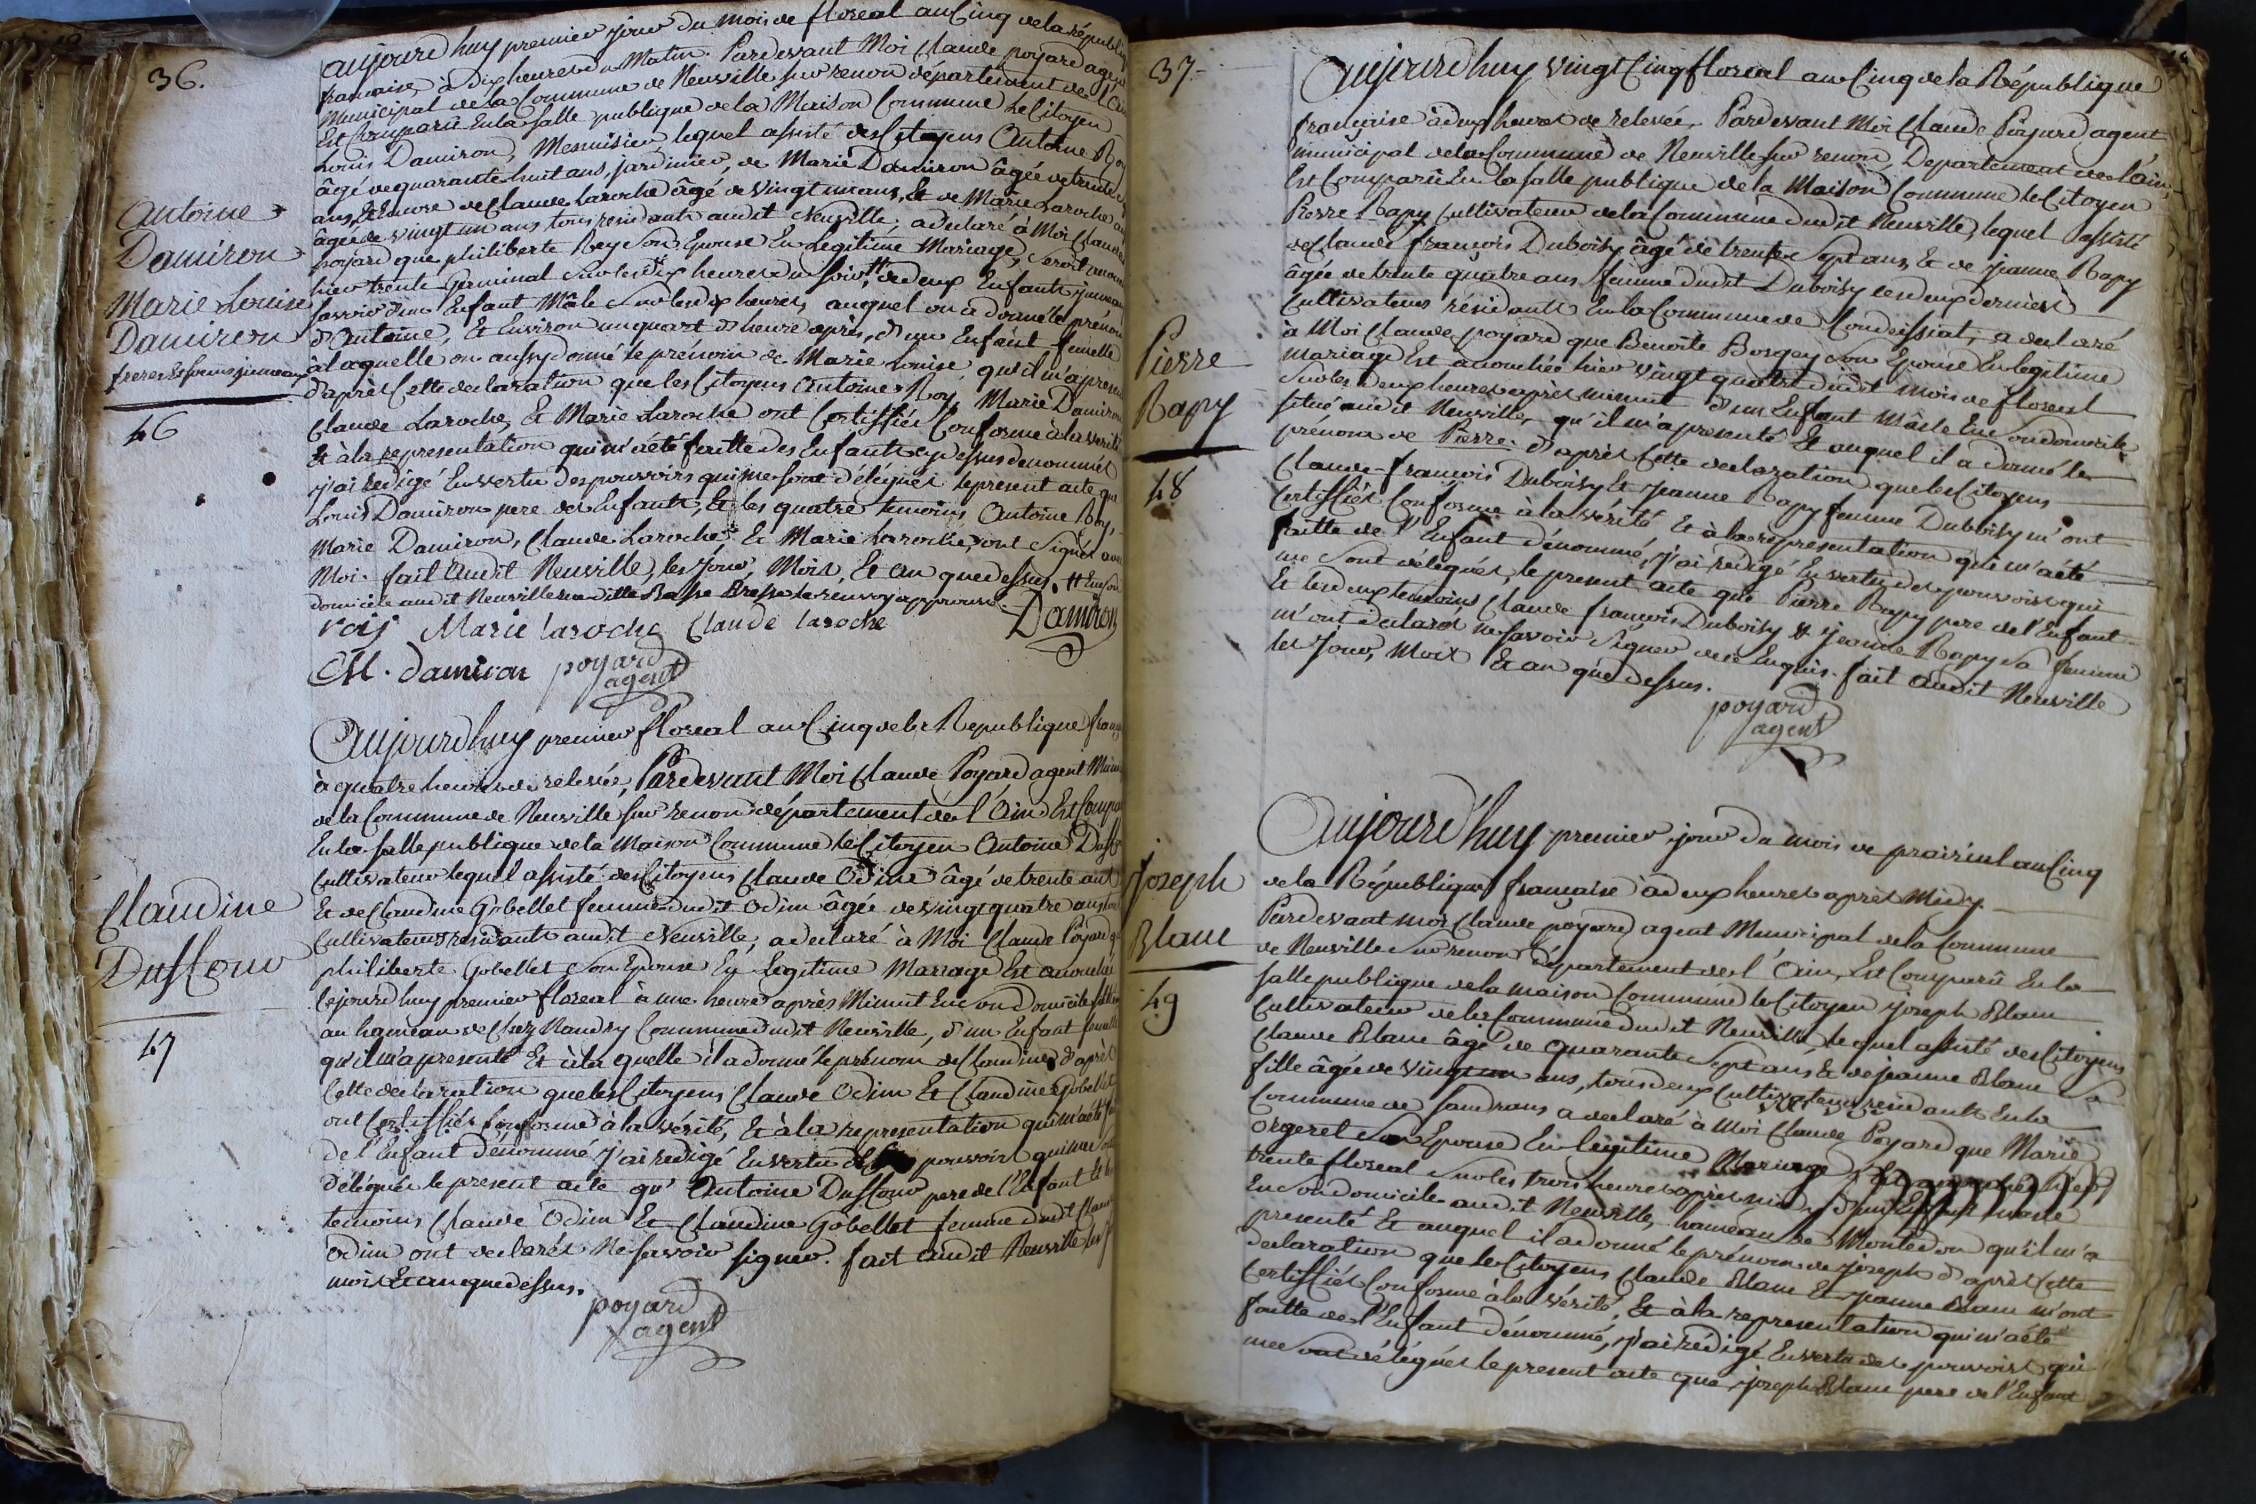 36.
aujourd huy premier jour du mois de floreal an Cinq de la républi
francaise, à dix heures du Matin. Pardevant Moi Claude poyard agent
Municipal de la Commune de Neuville sur renon département de l'Ain
Est Comparû En la salle publique de la Maison Commune Le Citoyen
Louis Damiron, Menuisier, lequel assisté des Citoyens Antoine Roy
âgé de quarante huit ans, jardinier, de Marie Damiron âgée de trente
ans, de Claude Laroche âgé de vingt un ans, Et de Marie Laroche
âgée de vingt un ans tous residants audit Neuville; a declaré à Moi Claude
poyard que philiberte Rey Son Epouse En Legitime Mariage, seroit
hier trente Germinal Sur les dix heures du Soir, H de deux Enfants jumeaux
savoir d'un Enfant Mâle Sur les dix heures, auquel on a donné le prénom
d'Antoine, Et Environ un quart d'heure après, d'un Enfant femelle
à laquelle on a aussy donné le prénom de Marie Louise qu'il m'a presen
d'après Cette declaration que les Citoyens Antoine Roy, Marie Damiron
Claude Laroche, Et Marie Laroche ont Certiffiée Conforme à la verité
Et à la representation qui m'a été faitte des Enfants cy dessus denommés
j'ai redigé En vertu des pouvoirs qui me sont délégués le present acte que
Louis Damiron pere des Enfants, Et les quatre temoins Antoine Roy,
Marie Damiron, Claude Laroche Et Marie Laroche, ont Signés avec
Moi. fait audit Neuville, les Jour, Mois, Et an que dessus. H En son
domicile audit Neuville Basse Bresse le renvoy approuvé.
Antoine
Damiron
Marie Louise
Damiron
freres Et soeurs jumeaux
46
roij Marie laroche Claude laroche Damiron
M. damiron poyard
agent
Aujourd huy premier floreal an Cinq de la Republique fran
à quatre heures de relevée, Pardevant Moi Claude Poyard agent Mun
de la Commune de Neuville sur renon département de l'Ain Est Compa
En la salle publique de la Maison Commune le Citoyen Antoine Duffour
Cultivateur lequel assisté des Citoyens Claude Odin âgé de trente ans
Et de Claudine Gobellet femme dudit Odin âgée de vingt quatre ans
Cultivateurs residants audit Neuville, a declaré à Moi Claude Poyard que
philiberte Gobellet Son Epouse En Legitime Mariage Est accouchée
Cejourd huy premier floreal à une heure après Minuit En son domicile
au hameau de Chez Naudry Commune dudit Neuville, d'un Enfant femelle
qu'il m'a presenté Et à la quelle il a donné le prénom de Claudine d'après
Cette declaration que les Citoyens Claude Odin Et Claudine Gobellet
ont Certiffiés Conforme à la vérité, Et à la representation qui m'a été
de l'Enfant dénommé j'ai redigé En vertu des pouvoirs qui me sont
délégués le present acte qu' Antoine Duffour pere de l'Enfant Et les
temoins Claude Odin Et Claudine Gobellet femme dudit Claude
Odin ont declarés Ne savoir signer. fait audit Neuville les
mois Et an que dessus.
Claudine
Duffour
47
poyard
agent
37
Aujourd huy vingt Cinq floreal an Cinq de la République
francaise à deux heures de relevée, Pardevant Moi Claude Poyard agent
municipal de la Commune de Neuville sur renon, Departement de l'ain,
Est Comparû En la salle publique de la Maison Commune le Citoyen
Pierre Rapy Cultivateur de la Commune dudit Neuville, lequel assisté
de Claude françois Duboisy âgé de trente Sept ans, Et de Jeanne Rapy
âgée de trente quatre ans femme dudit Duboisy ces deux derniers
Cultivateurs résidants En la Commune de Condeissiat, a declaré
à Moi Claude poyard que Benoite Bosgey Son Epouse En legitime
Mariage Est accouchée hier vingt quatre dudit Mois de floreal
Sur les deux heures après minuit d'un Enfant Mâsle En son domicile
situé audit Neuville, qu'il m'a presenté Et auquel il a donné le
prénom de Pierre. d'après Cette declaration que les Citoyens
Claude-françois Duboisy Et Jeanne Rapy femme Duboisy m'ont
Certiffiés Conforme à la vérité Et à la representation qui m'a été
faitte de l'Enfant dénommé, j'ai rédigé En vertu des pouvoirs qui
me Sont délégués, le present acte que Pierre Rapy pere de l'Enfant
Et les deux temoins Claude françois Duboisy & Jeanne Rapy Sa femme
m'ont declarés ne savoir Signer de ce Enquis. fait audit Neuville
les Jour, Mois Et an que dessus.
Pierre
Rapy
48
poyard
agent
Aujourd'huy premier jour du mois de prairial an Cinq
de la République francaise à deux heures après Midy.
Pardevant moi Claude poyard agent Municipal de la Commune
de Neuville Sur renon département de l'Ain, Est Comparû En la
Salle publique de la maison Commune le Citoyen Joseph Blanc
Cultivateur de la Commune dudit Neuville, lequel assisté des Citoyens
Claude Blanc âgé de quarante Sept ans & de jeanne Blanc Sa
fille âgée de vingt un ans, tous deux Cultivateurs residants En la
Commune de Sandrans a declaré à Moi Claude Poyard que Marie
Orgeret Son Epouse En légitime Mariage Est accouchée hier
trente floreal Sur les trois heures après midy d'un Enfant masle
En Son domicile audit Neuville hameau de Montedon qu'il m'a
presenté Et auquel il a donné le prénom de joseph d'après Cette
declaration que les Citoyens Claude Blanc Et Jeanne Blanc m'ont
Certiffiés Conforme à la vérité, Et à la representation qui m'a été
faitte de l'Enfant dénommé, j'ai rédigé En vertu des pouvoirs qui
me sont délégués le present acte que joseph Blanc pere de l'Enfant
Joseph
Blanc
49